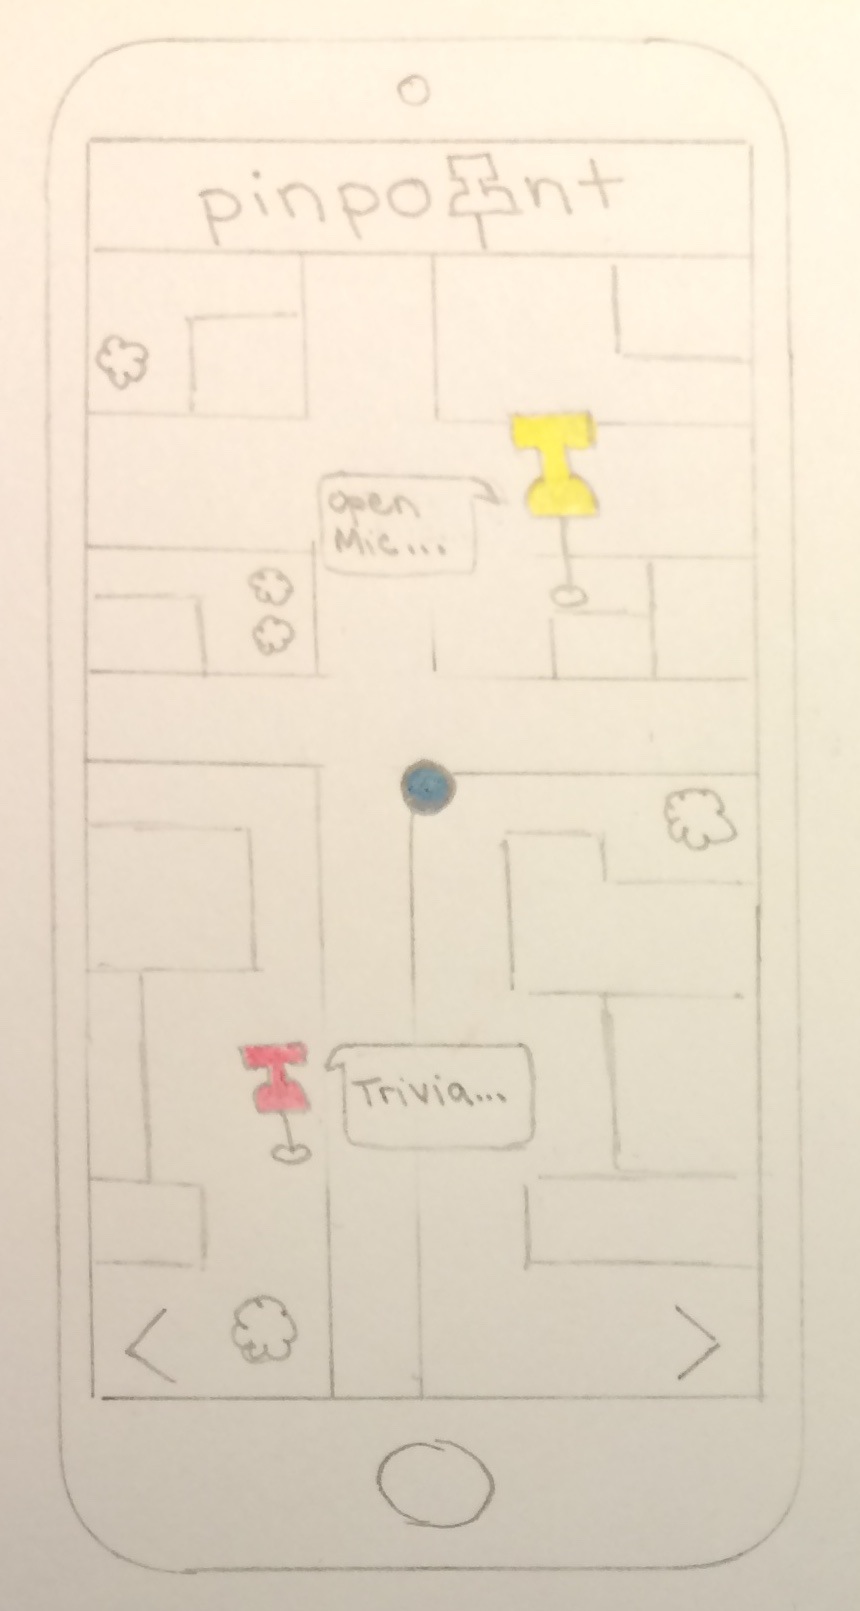 pinpoint
open
Mic...
Trivia...